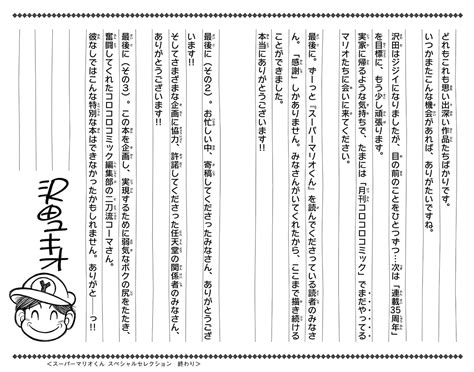 どれもこれも思い出深い作品たちばかりです。
いつかまたこんな機会があれば、ありがたいですね。
沢田はジジイになりましたが、目の前のことをひとつずつ…次は「連載35周年」
を目標に、もう少し頑張ります。
実家に帰るような気持ちで、たまには「月刊コロコロコミック」でまだやってる
マリオたちに会いに来てください。
最後に。ずーっと『スーパーマリオくん』を読んでくださっている読者のみなさ
ん。「感謝」しかありません。みなさんがいてくれたから、ここまで描き続ける
ことができました。
本当にありがとうございます!!
最後に(その2)。お忙しい中、寄稿してくださったみなさん、ありがとうござ
います!!
そしてさまざまな企画に協力、許諾してくださった任天堂の関係者のみなさん、
ありがとうございます!!
最後に(その3)。この本を企画し、実現するために弱気なボクの尻をたたき、
奮闘してくれたコロコロコミック編集部の二刀流コーマさん。
彼なしではこんな特別な本はできなかったかもしれません。ありがと――っ!!
沢田ユキオ
<スーパーマリオくん スペシャルセレクション 終わり>